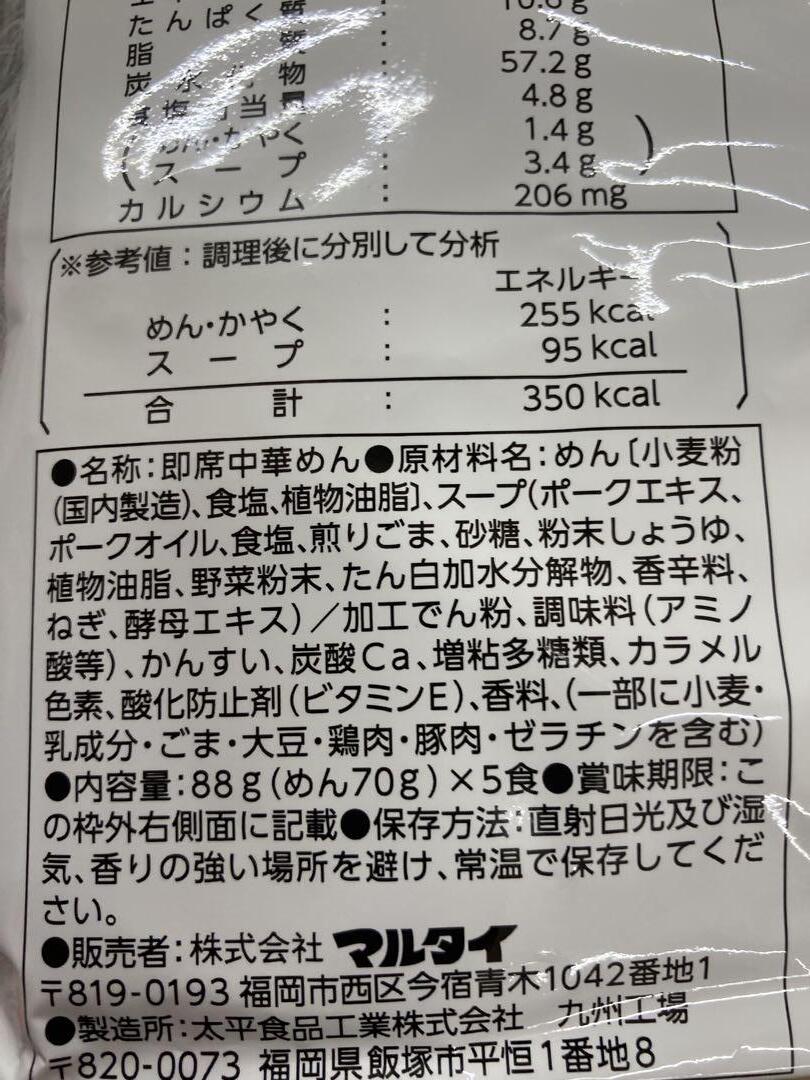 たんぱく質 : 10.6g
脂 質 : 8.7g
炭水化物 : 57.2g
食塩相当量 : 4.8g
(めん・かやく : 1.4g
スープ : 3.4g)
カルシウム : 206mg
※参考値:調理後に分別して分析
エネルギー
めん・かやく : 255kcal
スープ : 95kcal
合計 : 350kcal
●名称:即席中華めん●原材料名:めん〔小麦粉
(国内製造)、食塩、植物油脂〕、スープ(ポークエキス、
ポークオイル、食塩、煎りごま、砂糖、粉末しょうゆ、
植物油脂、野菜粉末、たん白加水分解物、香辛料、
ねぎ、酵母エキス)/加工でん粉、調味料(アミノ
酸等)、かんすい、炭酸Ca、増粘多糖類、カラメル
色素、酸化防止剤(ビタミンE)、香料、(一部に小麦・
乳成分・ごま・大豆・鶏肉・豚肉・ゼラチンを含む)
●内容量:88g(めん70g)×5食●賞味期限:こ
の枠外右側面に記載●保存方法:直射日光及び湿
気、香りの強い場所を避け、常温で保存してくだ
さい。
●販売者:株式会社 マルタイ
〒819-0193 福岡市西区今宿青木1042番地1
●製造所:太平食品工業株式会社 九州工場
〒820-0073 福岡県飯塚市平恒1番地8